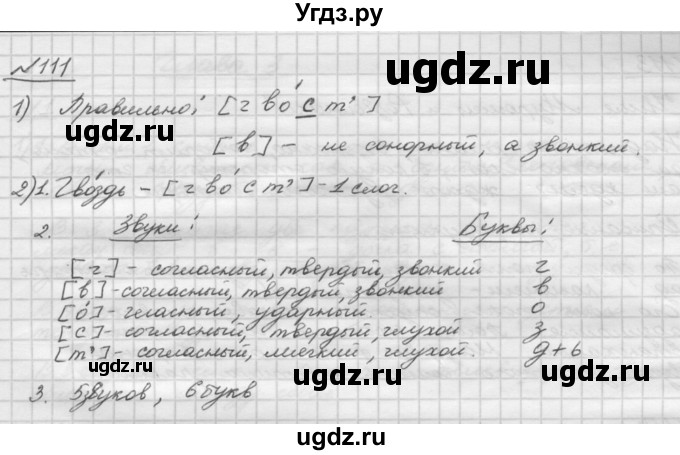 Угдз.ру
№111
1) Правильно: [г в о́ с т’]
ugdz.ru
ugdz.ru
[в] – не сонорный, а звонкий.
2) 1. Гво́здь – [г в о́ с т’] – 1 слог.
ugdz.ru
2. Звуки: Буквы:
ugdz.ru
[г] – согласный, твердый, звонкий г
[в] – согласный, твердый, звонкий в
ugdz.ru
[о́] – гласный, ударный. о
[с] – согласный, твердый, глухой з
[т’] – согласный, мягкий, глухой. д+ь
ugdz.ru
ugdz.ru
3. 5 звуков, 6 букв
ugdz.ru
ugdz.ru